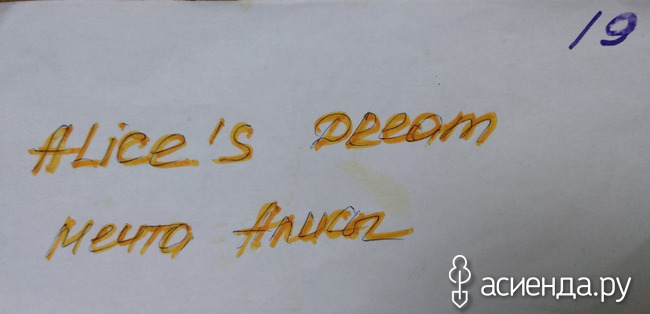 19
Alice's Dream
Мечта Алисы
асиенда.ру